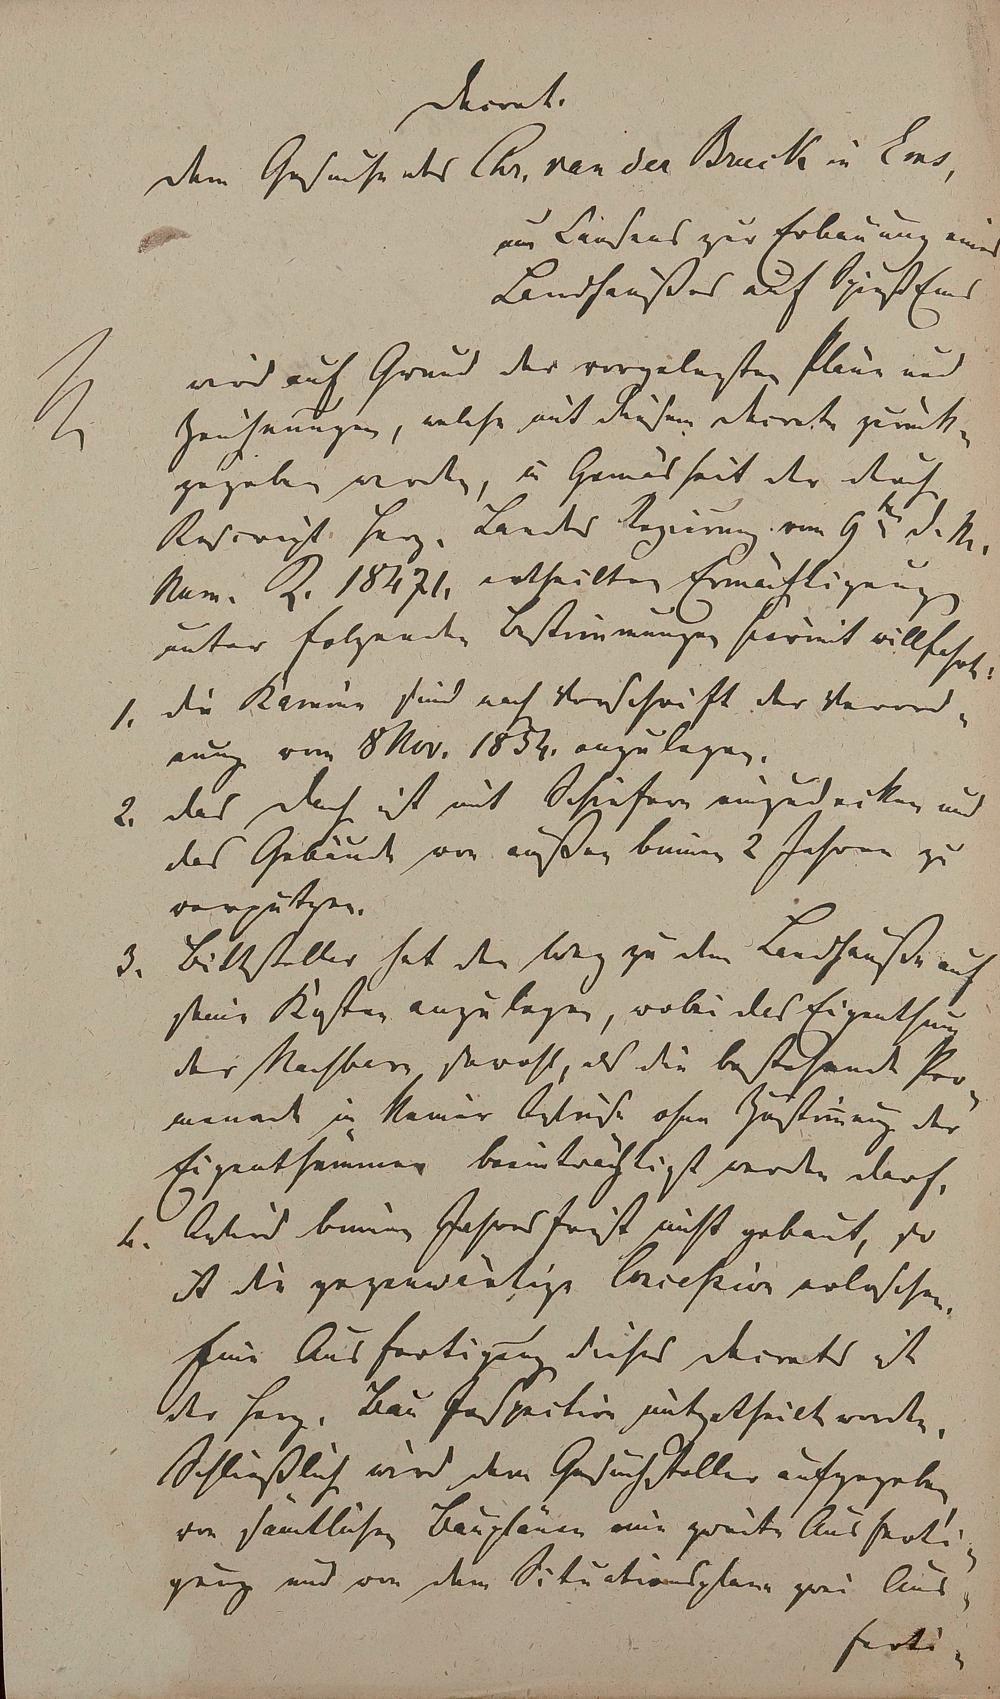 Decret.
Dem Gesuche des Chr. van der Bruck in Ems,
um Licenz zur Erbauung eines
Landhaußes auf Spieß Ems
wird auf Grund der vorgelegten Pläne und
Zeichnungen, welche mit diesem Decrete zurück-
gegeben werden, in Gemäsheit der durch
Rescript Herz. Landes Regierung vom 9ten d. M.
Num. R. 18471. ertheilten Ermächtigung
unter folgenden Bestimmungen hiermit willfahrt:
1. die Kamine sind nach Vorschrift der Verord-
nung vom 8 Nov. 1854. anzulegen.
2. das Dach ist mit Schiefern einzudecken und
das Gebäude von außen binnen 2 Jahren zu
verputzen.
3. Bittsteller hat den Weg zu dem Landhauße auf
seine Kosten anzulegen, wobei das Eigenthum
der Nachbarn sowohl, als die bestehende Pro-
menade in keiner Weise ohne Zustimmung der
Eigenthümer beeinträchtigt werden darf.
4. Wird binnen Jahresfrist nicht gebaut, so
ist die gegenwärtige Concession erloschen.
Eine Ausfertigung dieses Decrets ist
der Herz. Bau Inspection mitgetheilt worden.
Schließlich wird dem Gesuchsteller aufgegeben
von sämtlichen Bauplänen eine zweite Ausferti-
gung und von dem Situationsplane zwei Aus-
ferti-